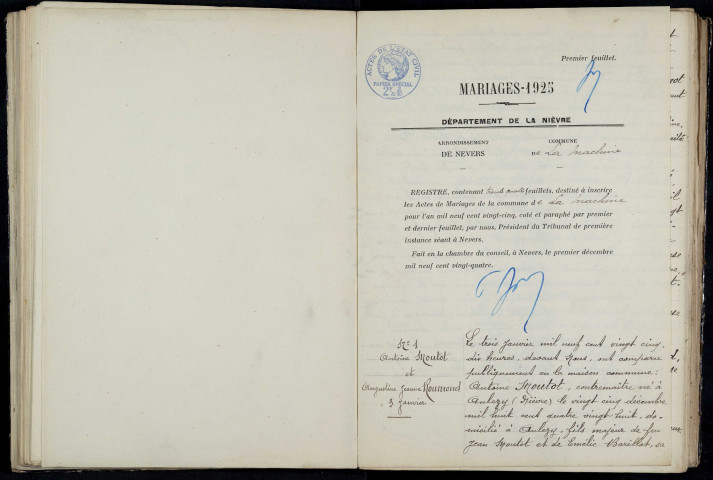 Premier feuillet.
ACTES DE L'ETAT CIVIL
PAPIER SPECIAL
MARIAGES-1925
DÉPARTEMENT DE LA NIÈVRE
ARRONDISSEMENT
DE NEVERS
COMMUNE
DE La Machine
REGISTRE, contenant feuillets, destiné à inscrire
les Actes de Mariages de la commune de La Machine
pour l'an mil neuf cent vingt-cinq, coté et paraphé par premier
et dernier feuillet, par nous, Président du Tribunal de première
instance séant à Nevers.
Fait en la chambre du conseil, à Nevers, le premier décembre
mil neuf cent vingt-quatre.
N° 1
Antoine Moutot
et
Augustine Jeanne
3 Janvier
Le trois Janvier mil neuf cent vingt cinq,
dix heures, devant Nous, ont comparu
publiquement en la maison commune:
Antoine Moutot, contremaître né à
Anlezy (Nièvre) le vingt cinq décembre
mil huit cent quatre vingt huit, do-
micilié à Anlezy, fils majeur de feu
Jean Moutot et de Emélie Barillot, sa